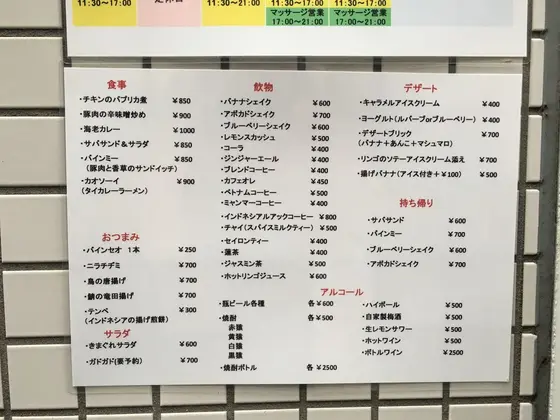 11:30～17:00
定休日
11:30～21:00
11:30～17:00
マッサージ営業
17:00～21:00
11:30～21:00
マッサージ営業
17:00～21:00
食事
・チキンのパプリカ煮 ¥850
・豚肉の辛味噌炒め ¥900
・海老カレー ¥1000
・サバサンド&サラダ ¥850
・バインミー ¥850
(豚肉と香草のサンドイッチ)
・カオソーイ ¥900
(タイカレーラーメン)
おつまみ
・バインセオ 1本 ¥250
・ニラチヂミ ¥700
・鳥の唐揚げ ¥700
・鯖の竜田揚げ ¥700
・テンペ ¥300
(インドネシアの揚げ煎餅)
サラダ
・きまぐれサラダ ¥600
・ガドガド(要予約) ¥700
飲物
・バナナシェイク ¥600
・アボカドシェイク ¥700
・ブルーベリーシェイク ¥600
・レモンスカッシュ ¥500
・コーラ ¥400
・ジンジャーエール ¥400
・ブレンドコーヒー ¥400
・カフェオレ ¥450
・ベトナムコーヒー ¥500
・ミャンマーコーヒー ¥400
・インドネシアルアックコーヒー ¥800
・チャイ(スパイスミルクティー) ¥500
・セイロンティー ¥400
・蓮茶 ¥400
・ジャスミン茶 ¥500
・ホットリンゴジュース ¥600
デザート
・キャラメルアイスクリーム ¥400
・ヨーグルト(ルバーブorブルーベリー) ¥400
・デザートブリック ¥700
(バナナ+あんこ+マシュマロ)
・リンゴのソテーアイスクリーム添え ¥700
・揚げバナナ(アイス付き+¥100) ¥500
持ち帰り
・サバサンド ¥600
・バインミー ¥700
・ブルーベリーシェイク ¥600
・アボカドシェイク ¥700
アルコール
・瓶ビール各種 各¥600
・焼酎 各¥500
赤猿
黄猿
白猿
黒猿
・焼酎ボトル 各¥2500
・ハイボール ¥500
・自家製梅酒 ¥500
・生レモンサワー ¥500
・ホットワイン ¥500
・ボトルワイン ¥2500